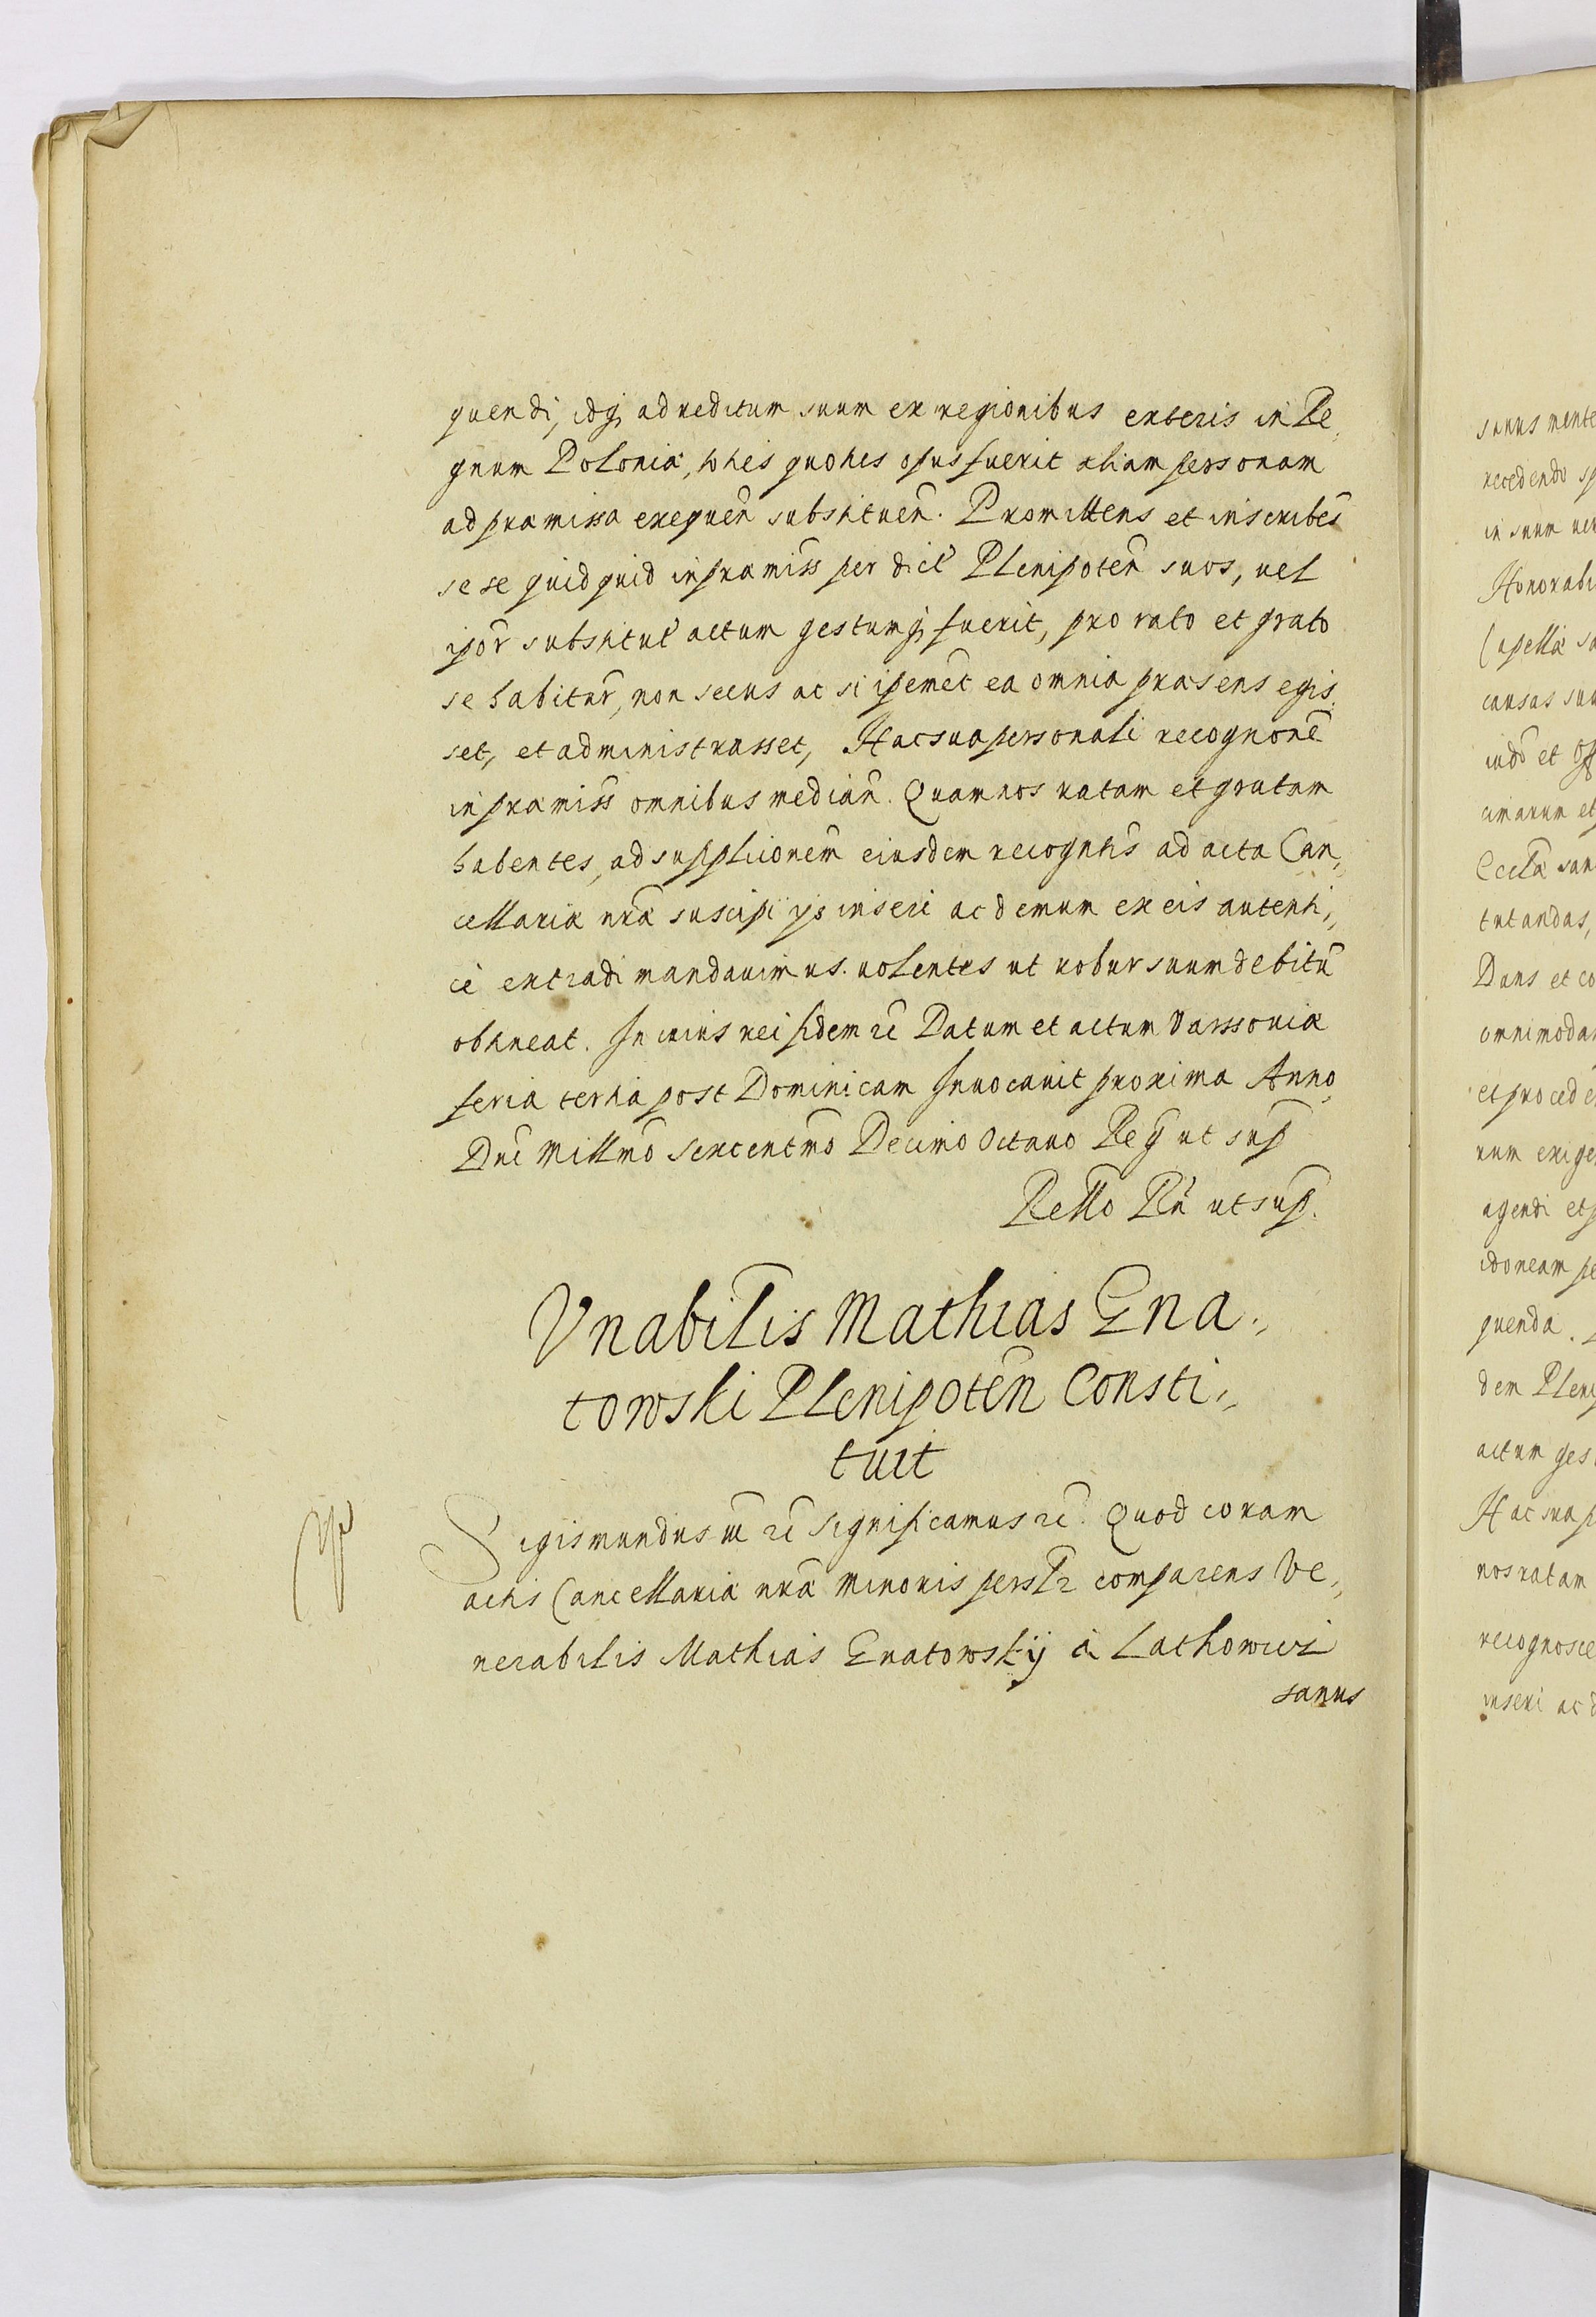 quendi, idq; ad reditum suum ex regionibus exteris in Re,
gnum Poloniæ, toties quoties opus fuerit aliam personam
ad præmissa exequen̄ substituen̄. Promittens et inscribēs
se se quidquid in præmiss̄ per dict̄ Plenipoten̄ suos, uel
ipōr substitut̄ actum gestumq; fuerit, pro rato et grato
se habitur̄, non secus ac si ipsemet̄ ea omnia præsens egis,
set, et administrasset, Hac sua personali recognōnē
in præmiss̄ omnibus median̄. Quam nos ratam et gratam
habentes, ad supplicōnem̄ eiusdem recogntis̄ ad acta Can,,
cellariæ nræ suscipi ijs inseri ac demum ex eis autenti,,
cè extradi mandauimus. uolentes ut robur suum debitū
obtineat. In cuius rei fidem ꝛc̄ Datum et actum Varssouiæ
feria tertia post Dominicam Inuocauit proxima Anno
Dnī Millmō sexcentmō Decimo Octauo Regn̄ ut sup̄
Rello Rń ut sup̄.
Vnabilīs Mathias Gna,,
towski Plenipotēn Consti,,
tuit
Sigismundus iii ꝛc̄ significamus ꝛc̄. Quod coram
actis Cancellariæ nræ minoris persl̄r comparens Ve,,
nerabilis Mathias Gnatowskij à Lathowici
sanus
sanus mente
recedendo sp
in suum uer
Honorabi
Capellæ sa
causas sua
iudō et Off
cimarum et
Eccl̄a san
tutandas,
Dans et co
omnimodam
et proced e
rum exige
agendi et p
idoneam pe
quenda.
dem Plenip
actum ges
Hac sua p
nos ratam
recognosce
inseri ac d